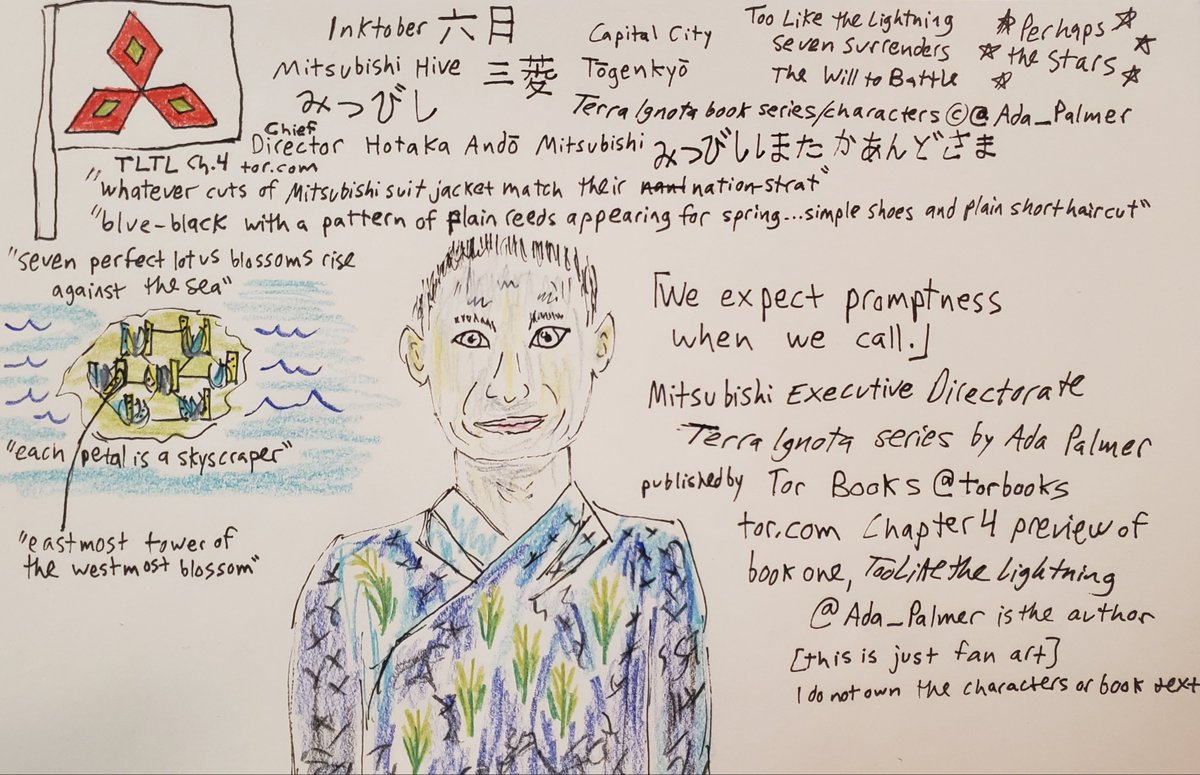 Inktober 六日
Mitsubishi Hive 三菱
みつびし
Capital City
Tōgenkyō
Too Like the Lightning
Seven Surrenders
The Will to Battle
Perhaps
the Stars
Terra Ignota book series/characters © @Ada_Palmer
Chief
Director Hotaka Andō Mitsubishi みつびしほたかあんどざま
TLTL Ch.4 tor.com
"whatever cuts of Mitsubishi suit jacket match their nation-strat"
"blue-black with a pattern of plain reeds appearing for spring...simple shoes and plain short haircut"
"seven perfect lotus blossoms rise
against the sea"
"each petal is a skyscraper"
"eastmost tower of
the westmost blossom"
「We expect promptness
when we call.」
Mitsubishi Executive Directorate
Terra Ignota series by Ada Palmer
published by Tor Books @torbooks
tor.com Chapter 4 preview of
book one, Too Like the Lightning
@Ada_Palmer is the author
[this is just fan art]
I do not own the characters or book text